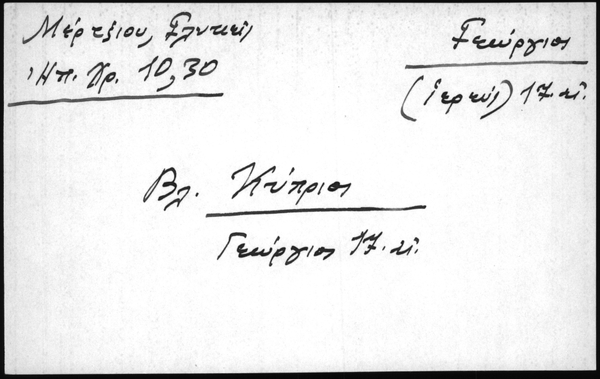 Μέρτζιου, Γλυκεῖς
Ἠπ. Χρ. 10, 30
Γεώργιος
(ἱερεύς) 17. αἰ.
Βλ. Κύπριος
Γεώργιος 17. αἰ.